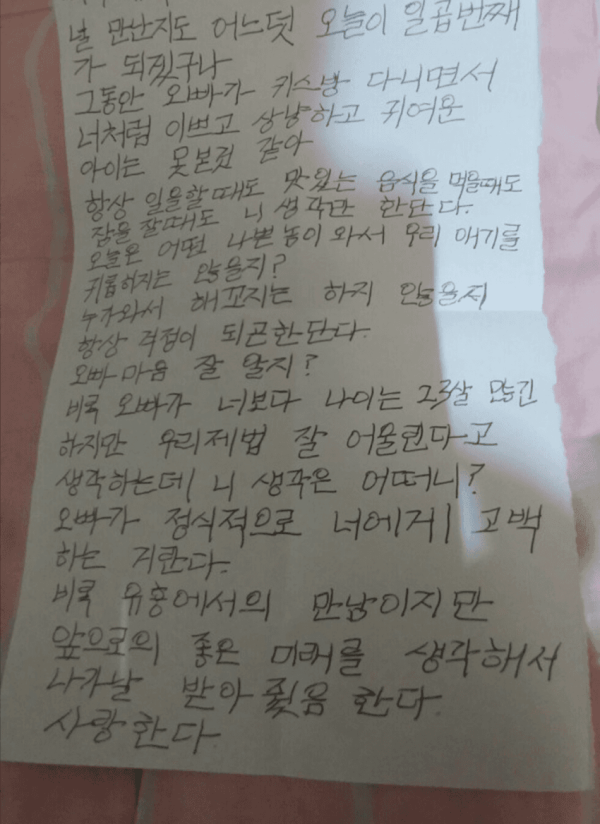 널 만난지도 어느덧 오늘이 일곱번째
가 되겠구나
그동안 오빠가 키스방 다니면서
너처럼 이쁘고 상냥하고 귀여운
아이는 못본것 같아
항상 일을할때도 맛있는 음식을 먹을때도
잠을 잘때도 니 생각만 한단다.
오늘은 어떤 나쁜놈이 와서 우리 애기를
괴롭히지는 않을지?
누가와서 해꼬지는 하지 않을지
항상 걱정이 되곤한단다.
오빠마음 잘 알지?
비록 오빠가 너보다 나이는 23살 많긴
하지만 우리제법 잘 어울린다고
생각하는데 니 생각은 어떠니?
오빠가 정식적으로 너에게 고백
하는 거란다.
비록 유흥에서의 만남이지만
앞으로의 좋은 미래를 생각해서
나가날 받아 줬음 한다.
사랑한다.